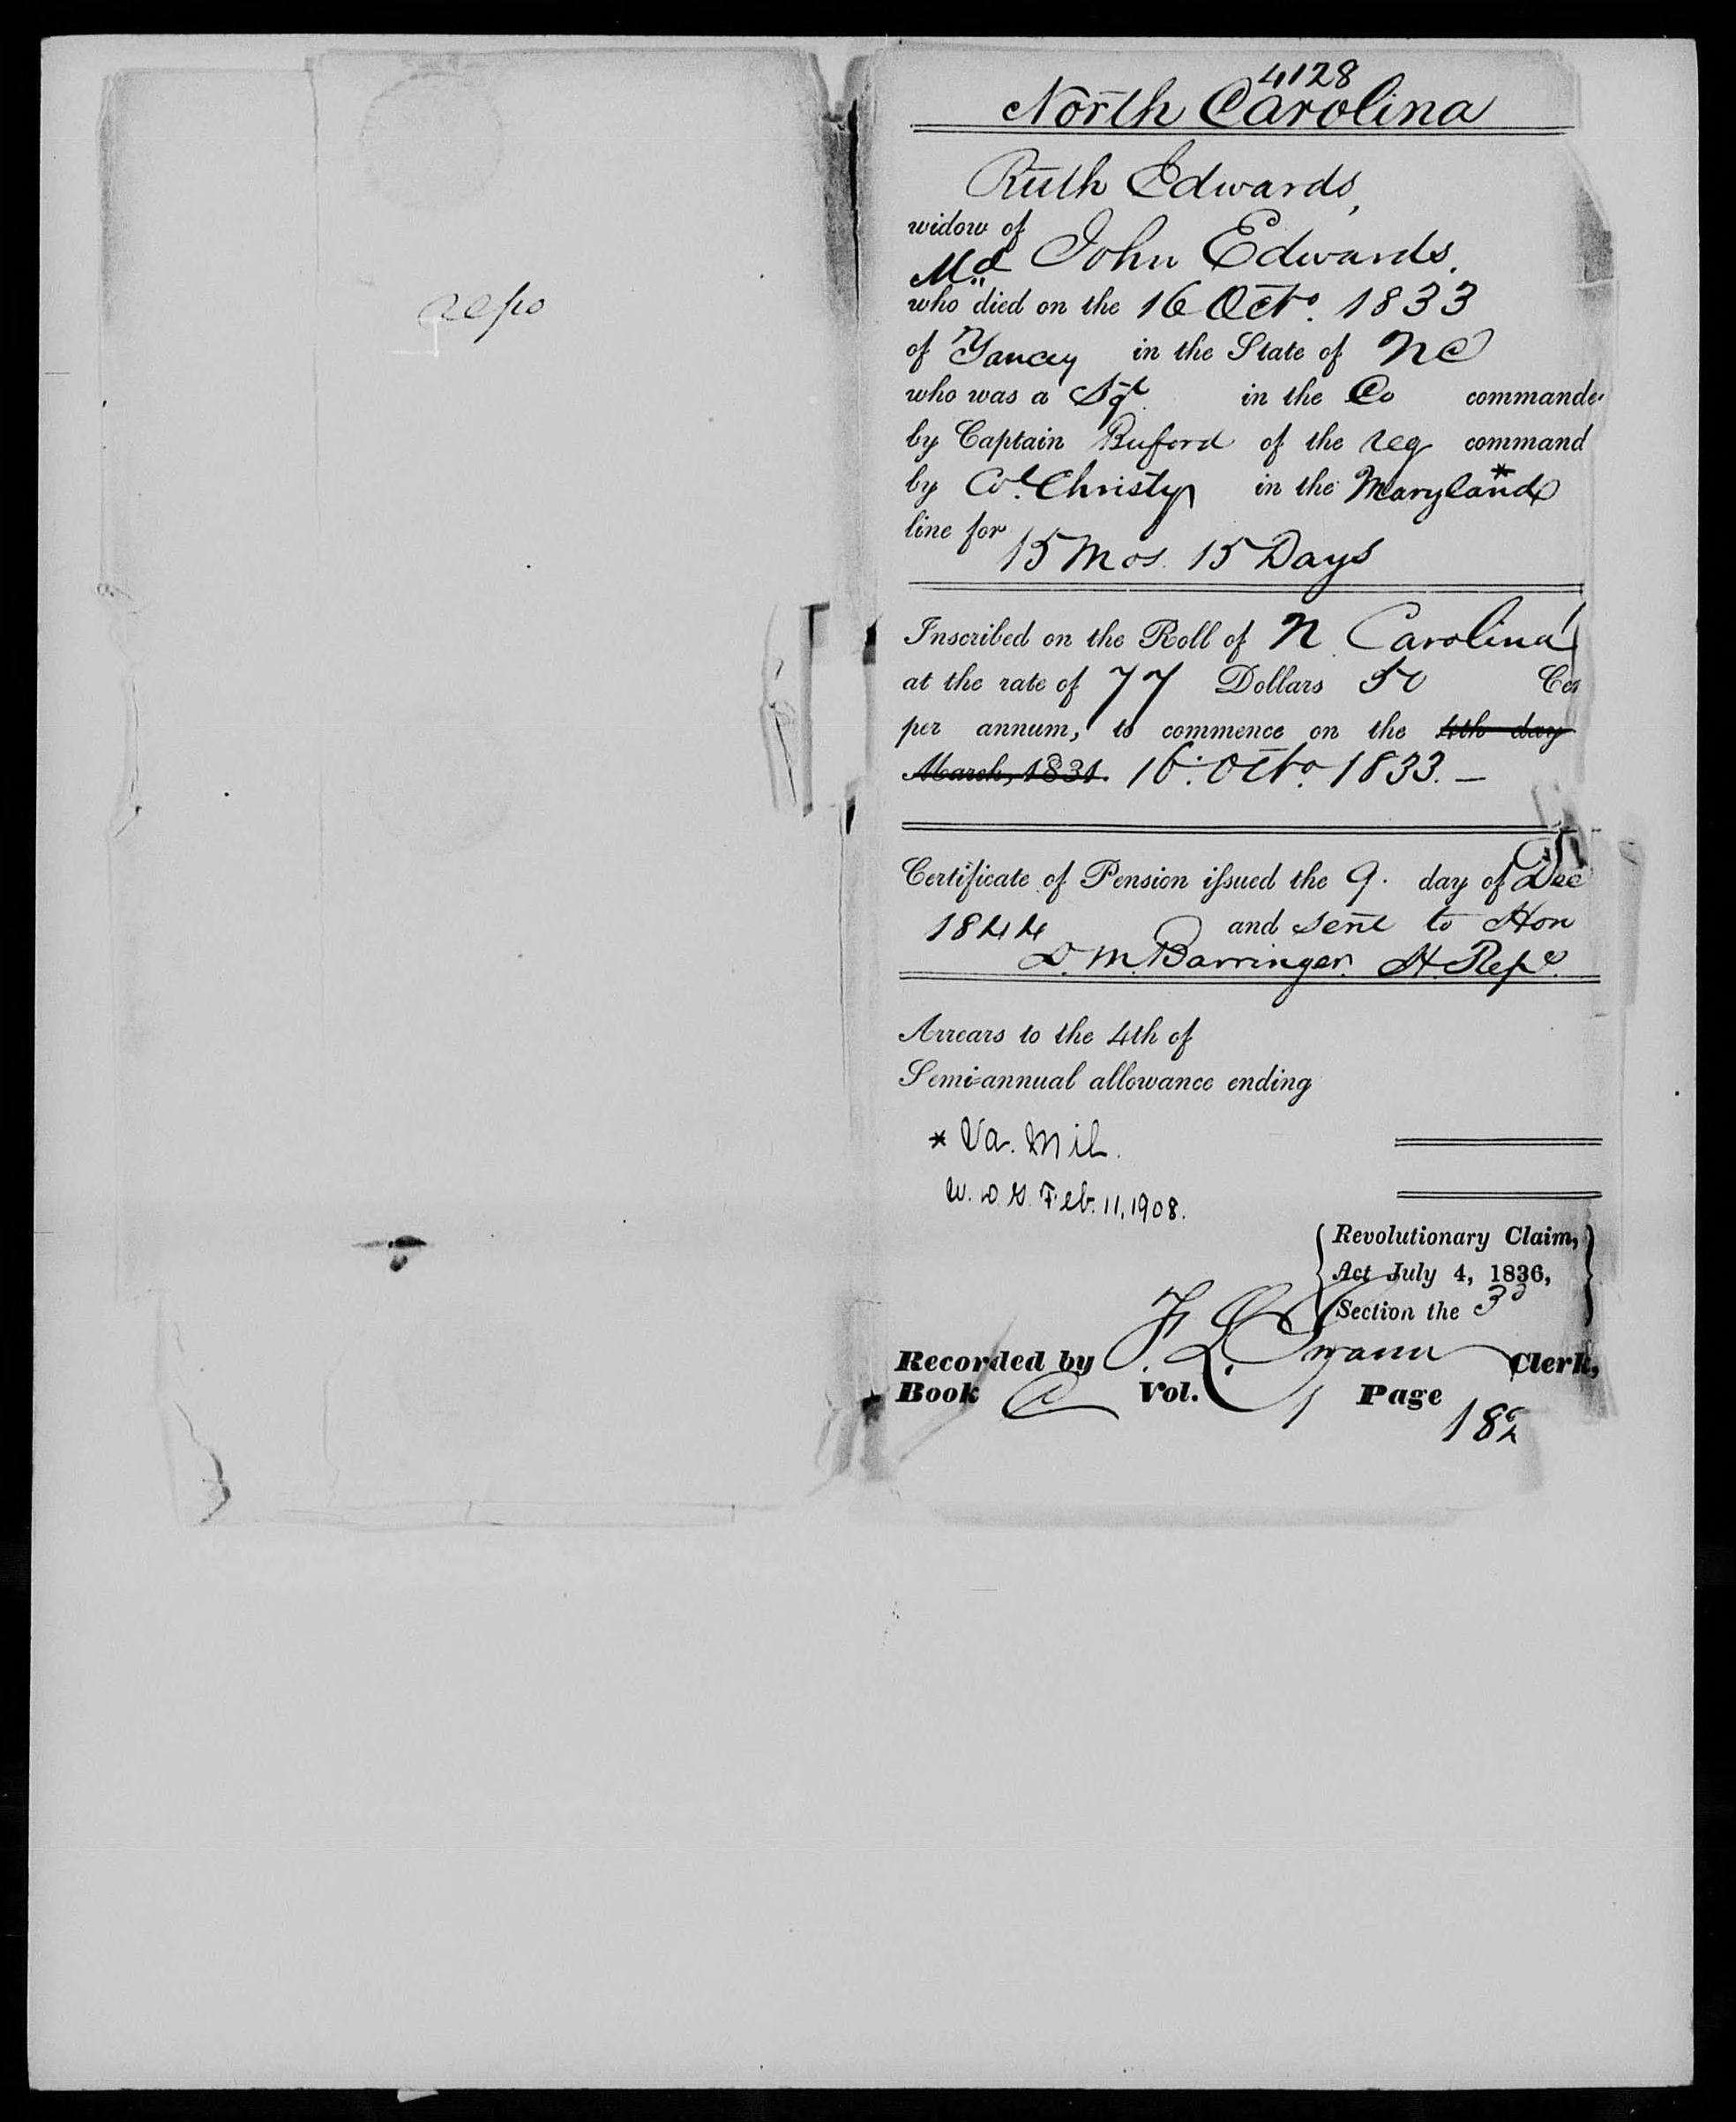 4128
North Carolina
Ruth Edwards,
widow of
Md John Edwards.
who died on the 16 Octo. 1833
of Yancey in the State of NC
who was a Sgt in the Co commande
by Captain Buford of the reg command
by Col. Christy in the Maryland *
line for
15 Mos. 15 Days
Inscribed on the Roll of N. Carolina
at the rate of 77 Dollars 50 Ce
per annum, to commence on the 4th day
March, 1831. 16. Octo. 1833. —
Certificate of Pension issued the 9. day of Dec
1844 and sent to Hon
D. M. Barringer. H. Reps.
Arrears to the 4th of
Semi-annual allowance ending
* Va. Mil.
W. D. G. Feb. 11, 1908.
Revolutionary Claim,
Act July 4, 1836,
Section the 3d
Recorded by F. L. Swann Clerk,
Book C Vol. 1 Page
182